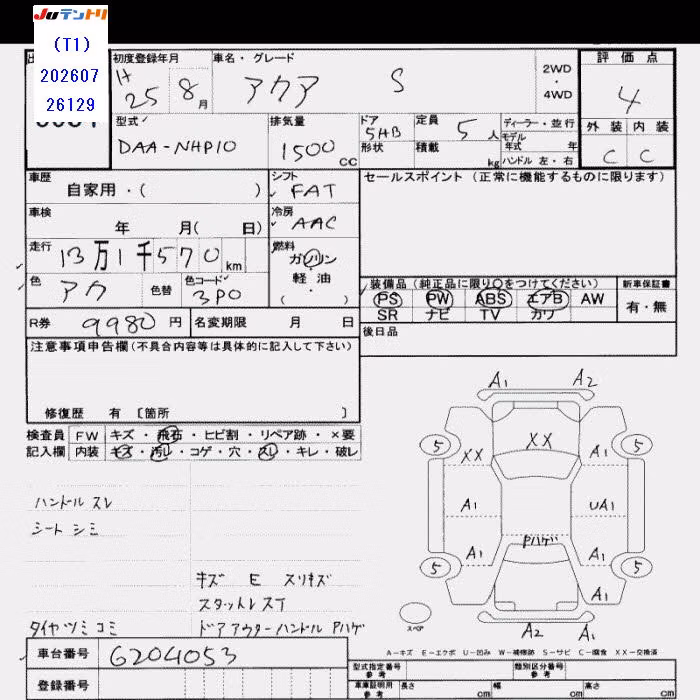 JUテントリ
(T1)
202607
26129
初度登録年月 車名・グレード 2WD・4WD 評価点
H 25 8月 アクア S 4
型式 排気量 ドア 定員 ディーラー・並行 外装 内装
DAA-NHP10 1500 CC 5HB 5人 モデル年式 年 C C
形状 積載 kg ハンドル 左・右
車歴 シフト セールスポイント (正常に機能するものに限ります)
自家用・( ) FAT
車検 冷房
年 月( 日) AAC
走行 燃料
13万1千570km ガソリン・軽油
色 色替 色コード ( ) 装備品 (純正品に限り〇をつけてください) 新車保証書
アカ 3P0 PS PW ABS エアB AW 有・無
SR ナビ TV カワ
R券 9980円 名変期限 月 日 後日品
注意事項申告欄(不具合内容等は具体的に記入して下さい)
修復歴 有 [箇所 ]
検査員 FW キズ・飛石・ヒビ割・リペア跡・×要
記入欄 内装 キズ・汚レ・コゲ・穴・スレ・キレ・破レ
A1 A2
5 XX XX A1 5
A1 UA1
Pハゲ
5 A1 A1 5
A1
スペア A2 A1
ハンドル スレ
シート シミ
キズ E スリキズ
スタットレスT
タイヤツミコミ ドアアウターハンドル Pハゲ
A-キズ E-エクボ U-凹み W-補修跡 S-サビ C-腐食 XX-交換済
車台番号 6204053 型式指定番号 参考 類別区分番号 参考
登録番号 車庫証明用 参考 長さ cm 幅 cm 高さ cm